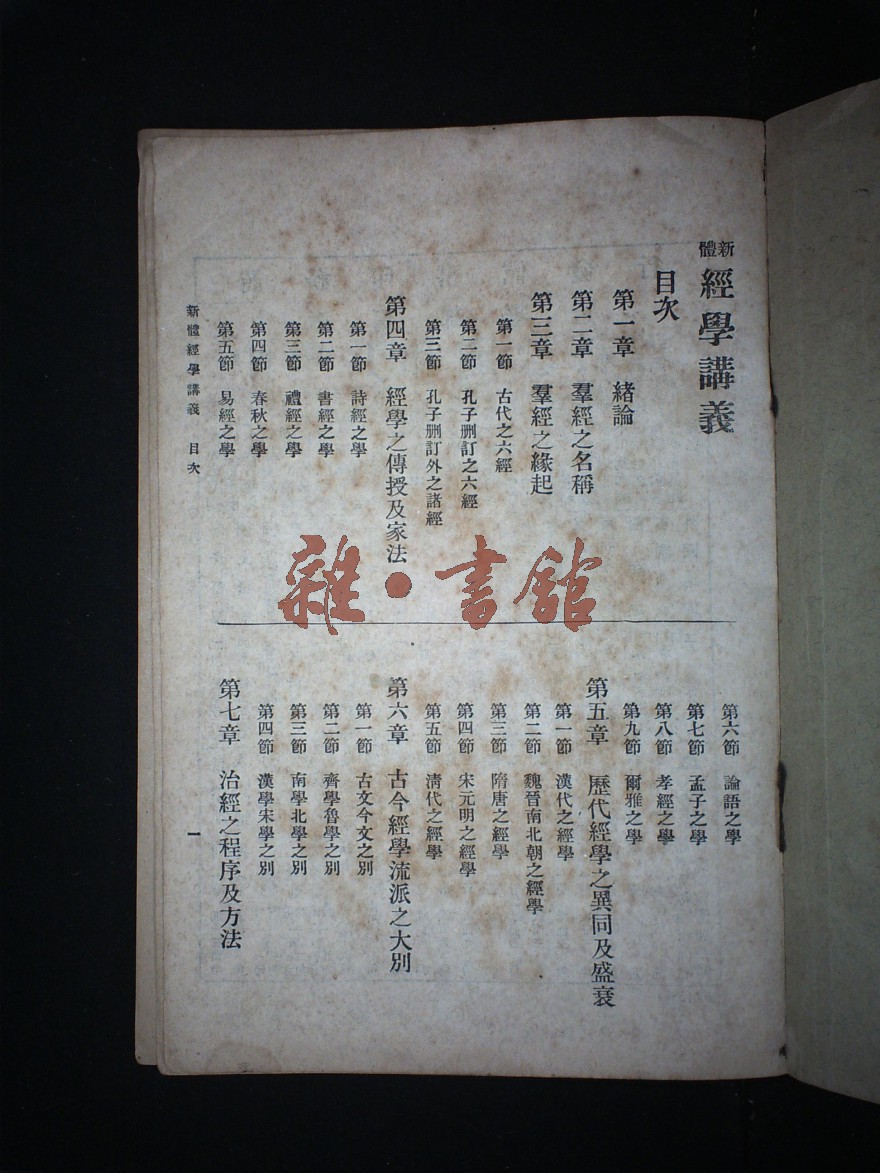 新體
經學講義
目次
第一章 緒論
第二章 羣經之名稱
第三章 羣經之緣起
第一節 古代之六經
第二節 孔子刪訂之六經
第三節 孔子刪訂外之諸經
第四章 經學之傳授及家法
第一節 詩經之學
第二節 書經之學
第三節 禮經之學
第四節 春秋之學
第五節 易經之學
第六節 論語之學
第七節 孟子之學
第八節 孝經之學
第九節 爾雅之學
第五章 歷代經學之異同及盛衰
第一節 漢代之經學
第二節 魏晉南北朝之經學
第三節 隋唐之經學
第四節 宋元明之經學
第五節 淸代之經學
第六章 古今經學流派之大別
第一節 古文今文之別
第二節 齊學魯學之別
第三節 南學北學之別
第四節 漢學宋學之別
第七章 治經之程序及方法
新體經學講義 目次
一
雜·書館